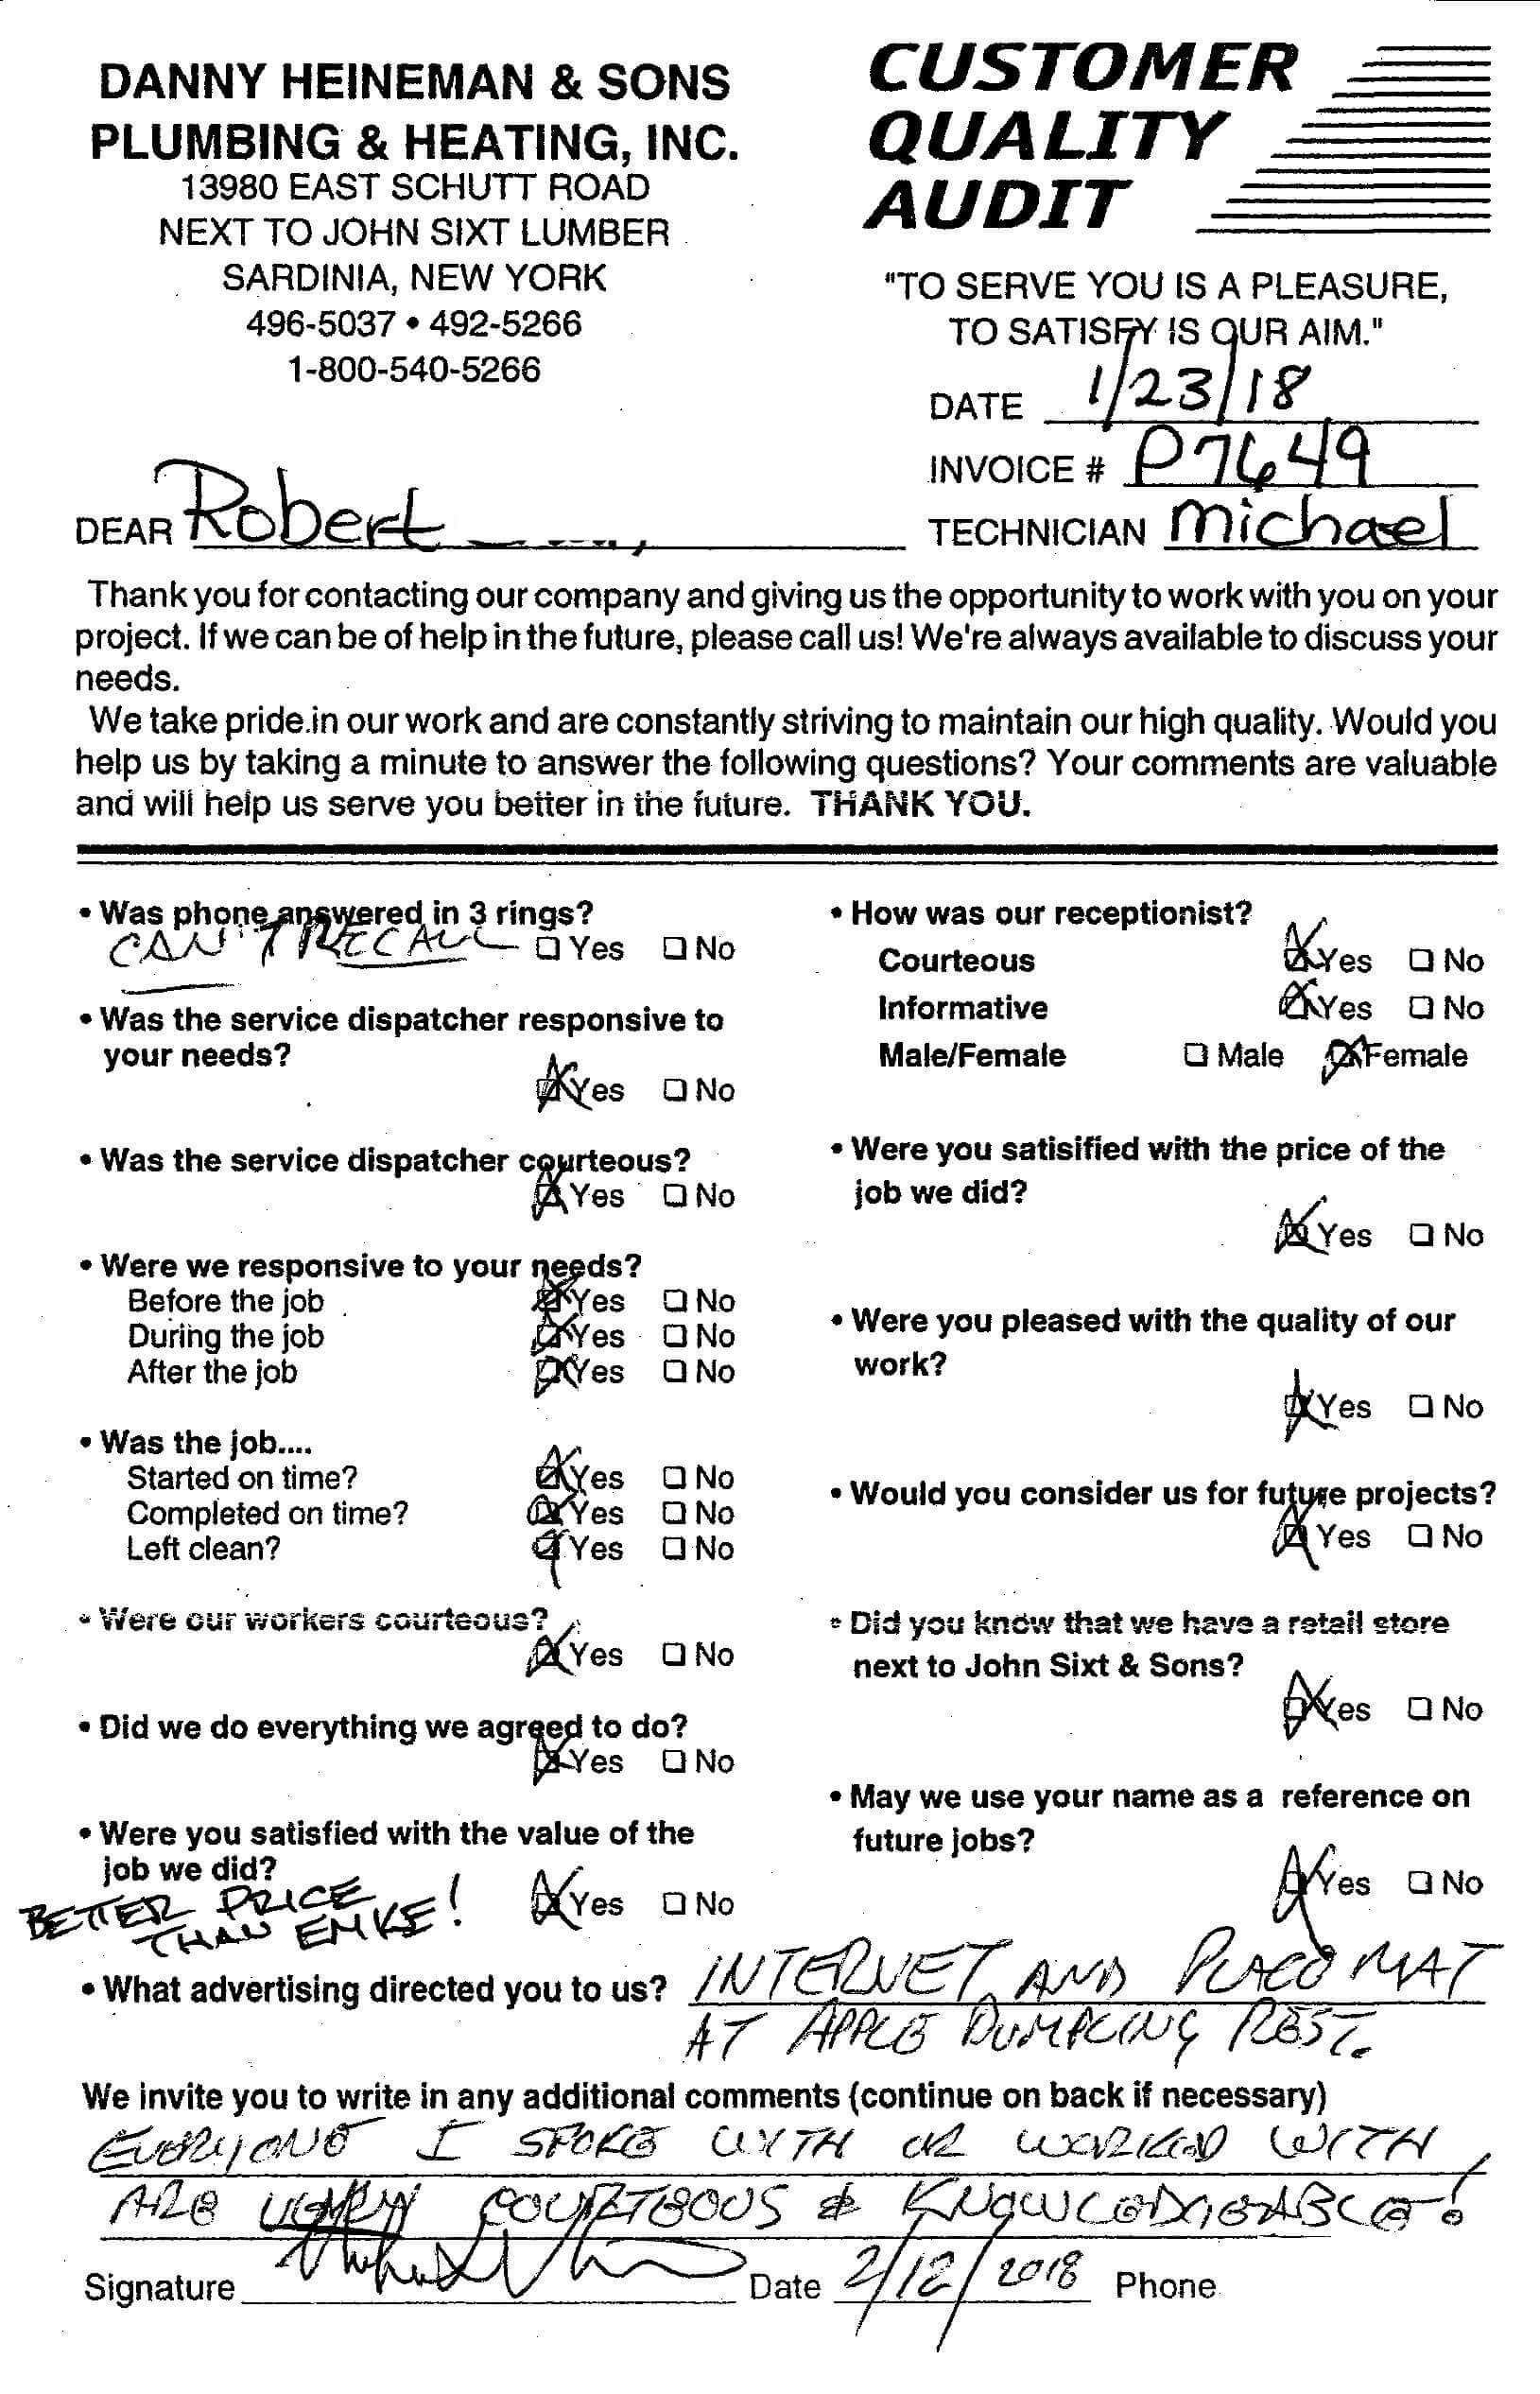 DANNY HEINEMAN & SONS
PLUMBING & HEATING, INC.
13980 EAST SCHUTT ROAD
NEXT TO JOHN SIXT LUMBER
SARDINIA, NEW YORK
496-5037 • 492-5266
1-800-540-5266
CUSTOMER
QUALITY
AUDIT
"TO SERVE YOU IS A PLEASURE,
TO SATISFY IS OUR AIM."
DATE 1/23/18
INVOICE # P7649
TECHNICIAN Michael
DEAR Robert ,
Thank you for contacting our company and giving us the opportunity to work with you on your
project. If we can be of help in the future, please call us! We're always available to discuss your
needs.
We take pride in our work and are constantly striving to maintain our high quality. Would you
help us by taking a minute to answer the following questions? Your comments are valuable
and will help us serve you better in the future. THANK YOU.
• Was phone answered in 3 rings?
CAN'T RECALL Yes No
• Was the service dispatcher responsive to
your needs?
Yes No
• Was the service dispatcher courteous?
Yes No
• Were we responsive to your needs?
Before the job Yes No
During the job Yes No
After the job Yes No
• Was the job....
Started on time? Yes No
Completed on time? Yes No
Left clean? Yes No
• Were our workers courteous?
Yes No
• Did we do everything we agreed to do?
Yes No
• Were you satisfied with the value of the
job we did?
Yes No
BETTER PRICE
THAN EMKE!
• How was our receptionist?
Courteous Yes No
Informative Yes No
Male/Female Male Female
• Were you satisified with the price of the
job we did?
Yes No
• Were you pleased with the quality of our
work?
Yes No
• Would you consider us for future projects?
Yes No
• Did you know that we have a retail store
next to John Sixt & Sons?
Yes No
• May we use your name as a reference on
future jobs?
Yes No
• What advertising directed you to us? INTERNET AND PLACE MAT
AT APPLE DUMPLING REST.
We invite you to write in any additional comments (continue on back if necessary)
EVERYONE I SPOKE WITH OR WORKED WITH
ARE VERY COURTEOUS & KNOWLEDGEABLE!
Signature Date 2/12/2018 Phone